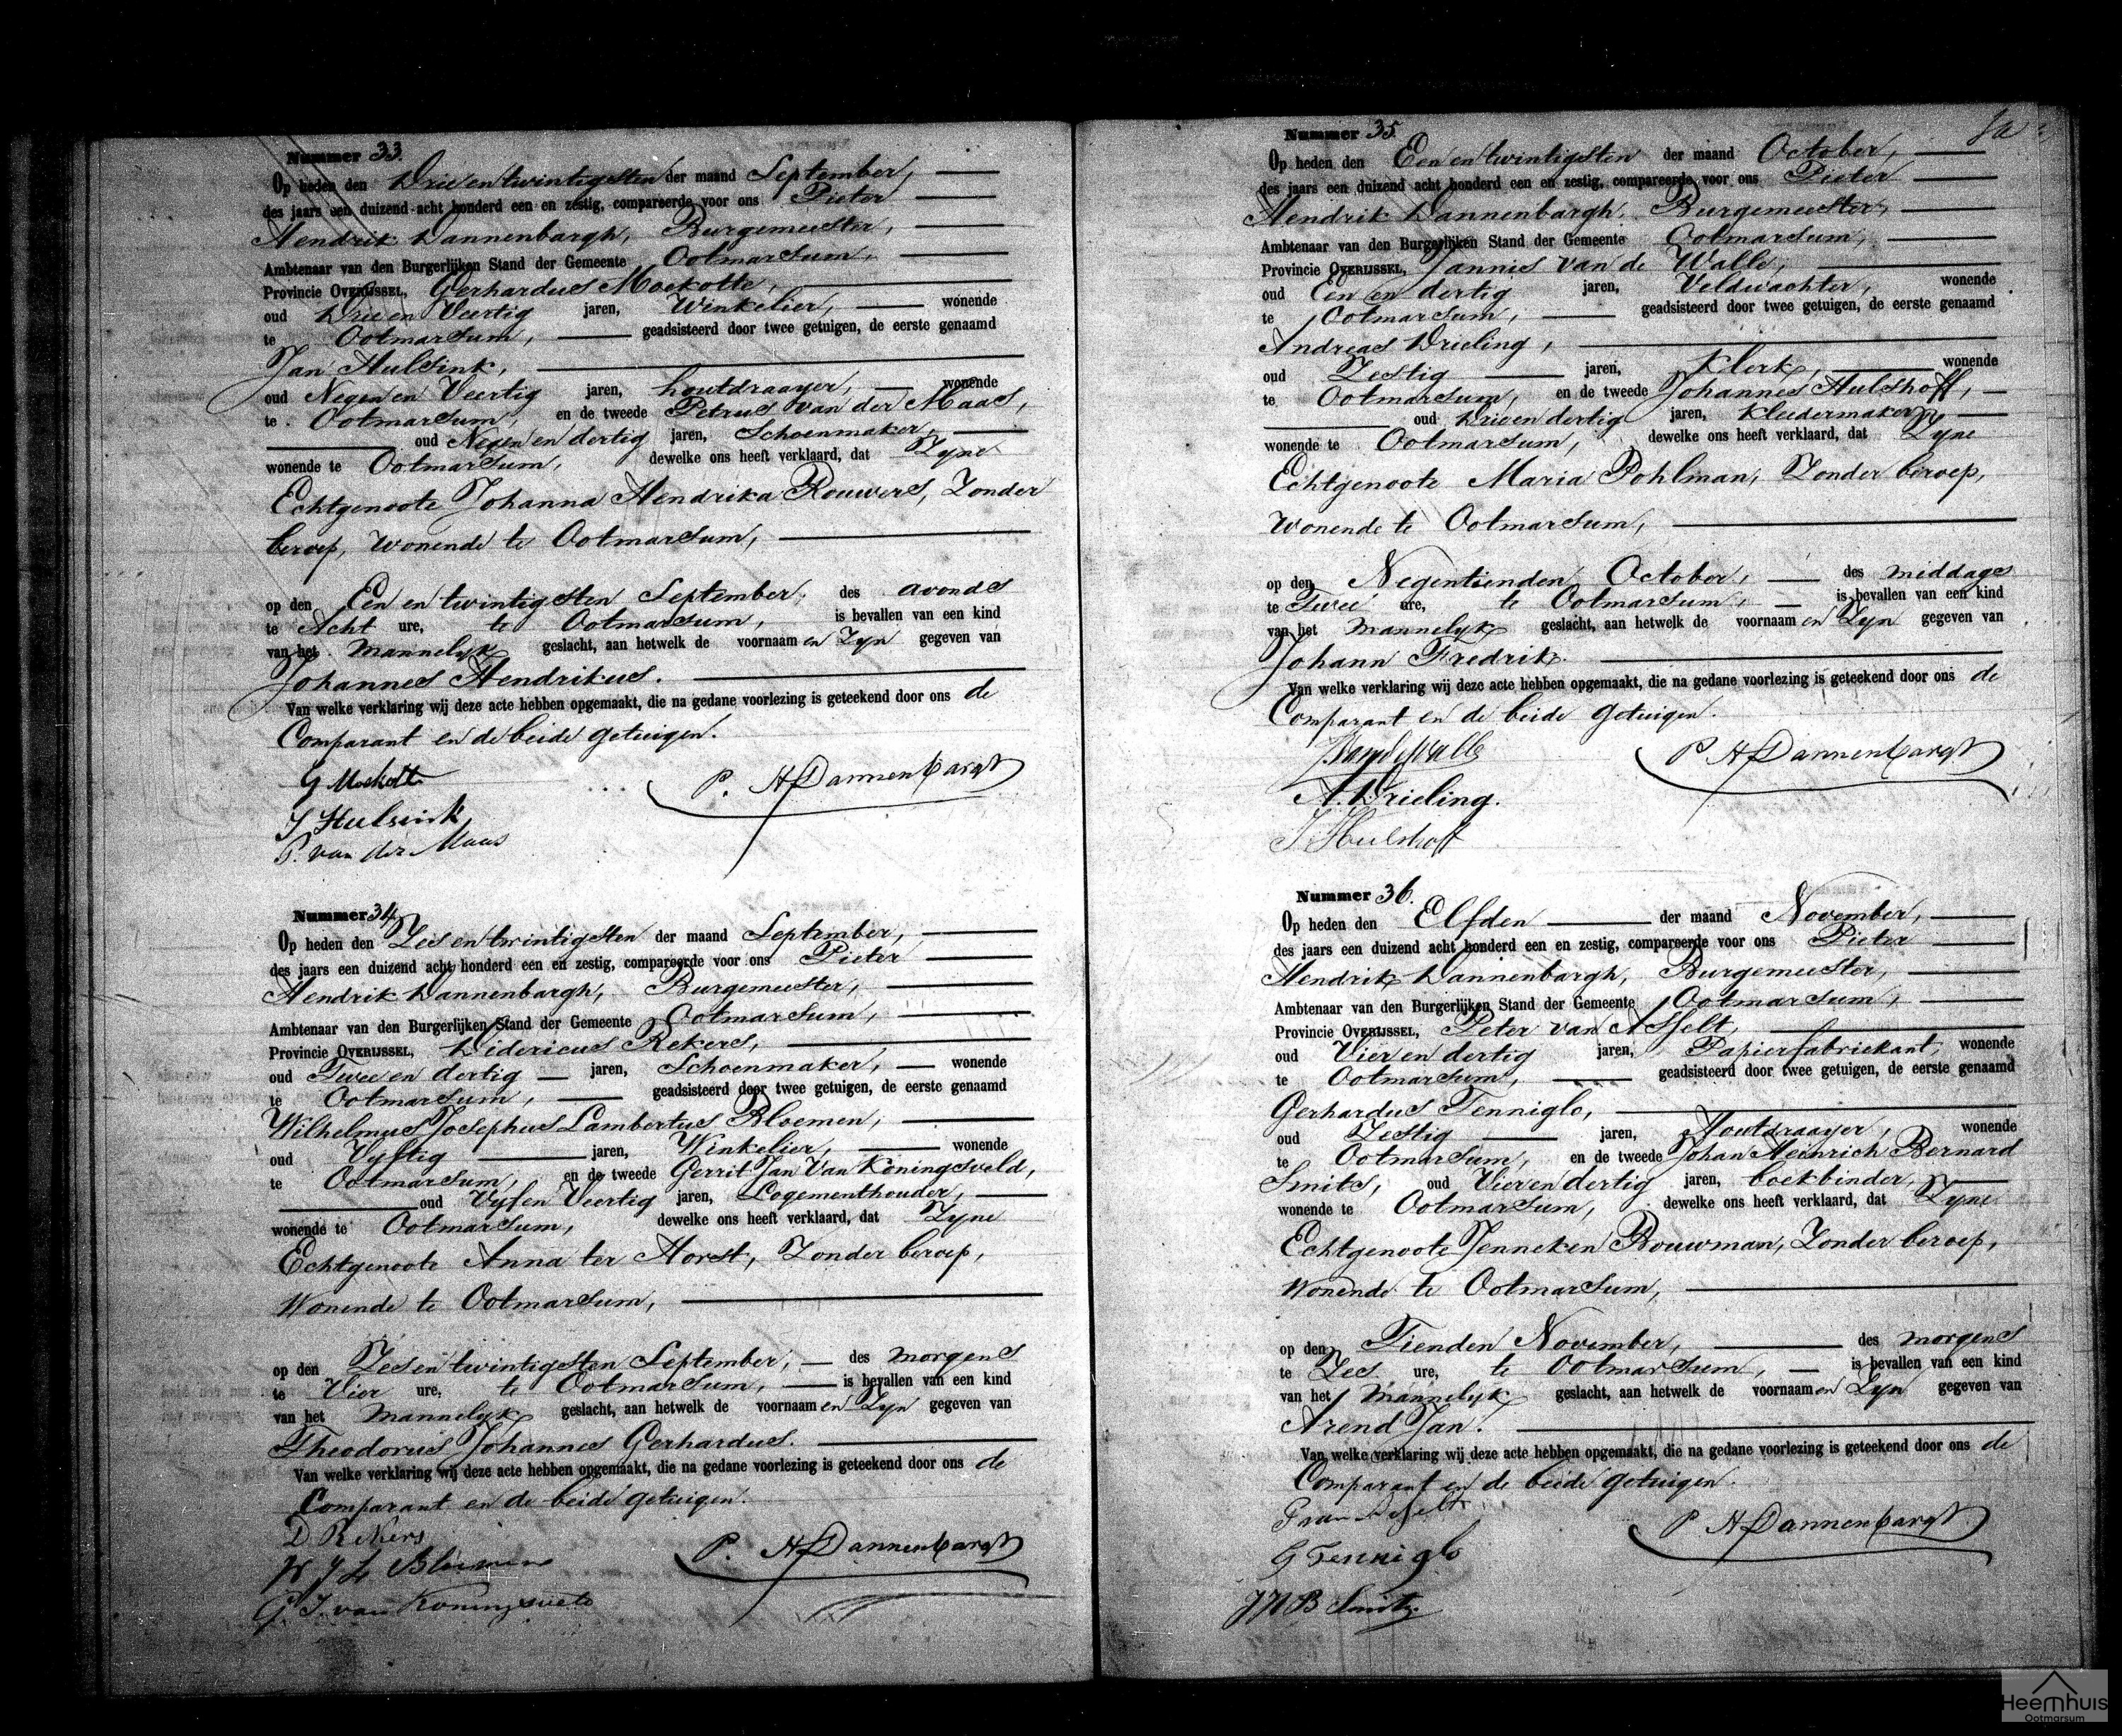 Nummer 33.
Op heden den Drie en twintigsten der maand September,
des jaars een duizend acht honderd een en zestig, compareerde voor ons Pieter
Hendrik Dannenbargh, Burgemeester,
Ambtenaar van den Burgerlijken Stand der Gemeente Ootmarsum,
Provincie OVERIJSSEL, Gerhardus Moekotte,
oud Drie en Veertig jaren, Winkelier, wonende
te Ootmarsum, geadsisteerd door twee getuigen, de eerste genaamd
Jan Hulsink,
oud Negen en Veertig jaren, houtdraayer, wonende
te Ootmarsum, en de tweede Petrus van der Maas,
oud Negen en dertig jaren, Schoenmaker,
wonende te Ootmarsum, dewelke ons heeft verklaard, dat Zyne
Echtgenoote Johanna Hendrika Rouwers, Zonder
beroep, Wonende te Ootmarsum,
op den Een en twintigsten September, des avonds
te Acht ure, te Ootmarsum, is bevallen van een kind
van het Mannelyk geslacht, aan hetwelk de voornaam en Zyn gegeven van
Johannes Hendrikus.
Van welke verklaring wij deze acte hebben opgemaakt, die na gedane voorlezing is geteekend door ons de
Comparant en de beide getuigen.
G Moekotte
P. H Dannenbargh
J Hulsink
P. van der Maas
Nummer 34.
Op heden den Zes en twintigsten der maand September,
des jaars een duizend acht honderd een en zestig, compareerde voor ons Pieter
Hendrik Dannenbargh, Burgemeester,
Ambtenaar van den Burgerlijken Stand der Gemeente Ootmarsum,
Provincie OVERIJSSEL, Didericus Rekers,
oud Twee en dertig jaren, Schoenmaker, wonende
te Ootmarsum, geadsisteerd door twee getuigen, de eerste genaamd
Wilhelmus Josephus Lambertus Bloemen,
oud Vyftig jaren, Winkelier, wonende
te Ootmarsum, en de tweede Gerrit Jan Van Koningsveld,
oud Vyf en Veertig jaren, Logementhouder,
wonende te Ootmarsum, dewelke ons heeft verklaard, dat Zyne
Echtgenoote Anna ter Horst, Zonder beroep,
Wonende te Ootmarsum,
op den Zes en twintigsten September, des morgens
te Vier ure, te Ootmarsum, is bevallen van een kind
van het Mannelyk geslacht, aan hetwelk de voornaam en Zyn gegeven van
Theodorus Johannes Gerhardus.
Van welke verklaring wij deze acte hebben opgemaakt, die na gedane voorlezing is geteekend door ons de
Comparant en de beide getuigen.
D Rekers
P. H Dannenbargh
W J L Bloemen
G. J. van Koningsveld
Nummer 35.
Op heden den Een en twintigsten der maand October,
des jaars een duizend acht honderd een en zestig, compareerde voor ons Pieter
Hendrik Dannenbargh, Burgemeester,
Ambtenaar van den Burgerlijken Stand der Gemeente Ootmarsum,
Provincie OVERIJSSEL, Jannis van de Walle,
oud Een en dertig jaren, Veldwachter, wonende
te Ootmarsum, geadsisteerd door twee getuigen, de eerste genaamd
Andreas Drieling,
oud Zestig jaren, Klerk, wonende
te Ootmarsum, en de tweede Johannes Hulshoff,
oud Drie en dertig jaren, Kleedermaker,
wonende te Ootmarsum, dewelke ons heeft verklaard, dat Zyne
Echtgenoote Maria Pohlman, Zonder beroep,
Wonende te Ootmarsum,
op den Negentienden October, des middags
te Twee ure, te Ootmarsum, is bevallen van een kind
van het Mannelyk geslacht, aan hetwelk de voornaam en Zyn gegeven van
Johann Fredrik.
Van welke verklaring wij deze acte hebben opgemaakt, die na gedane voorlezing is geteekend door ons de
Comparant en de beide getuigen.
J. van de Walle
P H Dannenbargh
A. Drieling.
J Hulshoff
Nummer 36.
Op heden den Elfden der maand November,
des jaars een duizend acht honderd een en zestig, compareerde voor ons Pieter
Hendrik Dannenbargh, Burgemeester,
Ambtenaar van den Burgerlijken Stand der Gemeente Ootmarsum,
Provincie OVERIJSSEL, Peter van Asselt,
oud Vier en dertig jaren, Papierfabriekant, wonende
te Ootmarsum, geadsisteerd door twee getuigen, de eerste genaamd
Gerhardus Tenniglo,
oud Zestig jaren, Houtdraayer, wonende
te Ootmarsum, en de tweede Johan Heinrich Bernard
Smits, oud Vier en dertig jaren, boekbinder,
wonende te Ootmarsum, dewelke ons heeft verklaard, dat Zyne
Echtgenoote Jenneken Bouwman, Zonder beroep,
Wonende te Ootmarsum,
op den Tienden November, des morgens
te Zes ure, te Ootmarsum, is bevallen van een kind
van het Mannelyk geslacht, aan hetwelk de voornaam en Zyn gegeven van
Arend Jan.
Van welke verklaring wij deze acte hebben opgemaakt, die na gedane voorlezing is geteekend door ons de
Comparant en de beide getuigen.
P van Asselt
P H Dannenbargh
G Tenniglo
J H B Smits.
Heemhuis
Ootmarsum